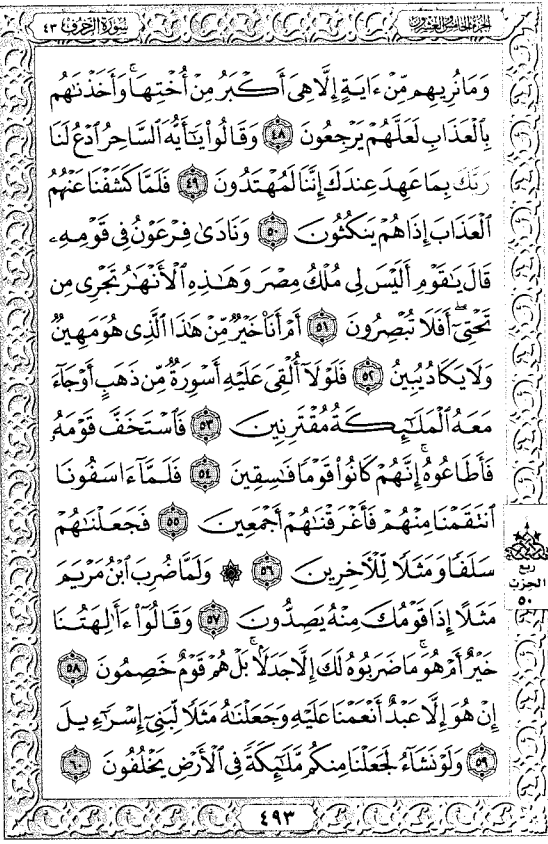 الجزء الخامس والعشرون
سورة الزخرف ٤٣
وَمَا نُرِيهِم مِّنْ ءَايَةٍ إِلَّا هِىَ أَكْبَرُ مِنْ أُخْتِهَا ۖ وَأَخَذْنَٰهُم
بِٱلْعَذَابِ لَعَلَّهُمْ يَرْجِعُونَ ٤٨ وَقَالُوا۟ يَٰٓأَيُّهَ ٱلسَّاحِرُ ٱدْعُ لَنَا
رَبَّكَ بِمَا عَهِدَ عِندَكَ إِنَّنَا لَمُهْتَدُونَ ٤٩ فَلَمَّا كَشَفْنَا عَنْهُمُ
ٱلْعَذَابَ إِذَا هُمْ يَنكُثُونَ ٥٠ وَنَادَىٰ فِرْعَوْنُ فِى قَوْمِهِۦ
قَالَ يَٰقَوْمِ أَلَيْسَ لِى مُلْكُ مِصْرَ وَهَٰذِهِ ٱلْأَنْهَٰرُ تَجْرِى مِن
تَحْتِىٓ ۖ أَفَلَا تُبْصِرُونَ ٥١ أَمْ أَنَا۠ خَيْرٌ مِّنْ هَٰذَا ٱلَّذِى هُوَ مَهِينٌ
وَلَا يَكَادُ يُبِينُ ٥٢ فَلَوْلَآ أُلْقِىَ عَلَيْهِ أَسْوِرَةٌ مِّن ذَهَبٍ أَوْ جَآءَ
مَعَهُ ٱلْمَلَٰٓئِكَةُ مُقْتَرِنِينَ ٥٣ فَٱسْتَخَفَّ قَوْمَهُۥ
فَأَطَاعُوهُ ۚ إِنَّهُمْ كَانُوا۟ قَوْمًا فَٰسِقِينَ ٥٤ فَلَمَّآ ءَاسَفُونَا
ٱنتَقَمْنَا مِنْهُمْ فَأَغْرَقْنَٰهُمْ أَجْمَعِينَ ٥٥ فَجَعَلْنَٰهُمْ
سَلَفًا وَمَثَلًا لِّلْءَاخِرِينَ ٥٦ ۞ وَلَمَّا ضُرِبَ ٱبْنُ مَرْيَمَ
مَثَلًا إِذَا قَوْمُكَ مِنْهُ يَصِدُّونَ ٥٧ وَقَالُوٓا۟ ءَأَٰلِهَتُنَا
خَيْرٌ أَمْ هُوَ ۚ مَا ضَرَبُوهُ لَكَ إِلَّا جَدَلًۢا ۚ بَلْ هُمْ قَوْمٌ خَصِمُونَ ٥٨
إِنْ هُوَ إِلَّا عَبْدٌ أَنْعَمْنَا عَلَيْهِ وَجَعَلْنَٰهُ مَثَلًا لِّبَنِىٓ إِسْرَٰٓءِيلَ
٥٩ وَلَوْ نَشَآءُ لَجَعَلْنَا مِنكُم مَّلَٰٓئِكَةً فِى ٱلْأَرْضِ يَخْلُفُونَ ٦٠
ربع
الحزب
٥٠
٤٩٣